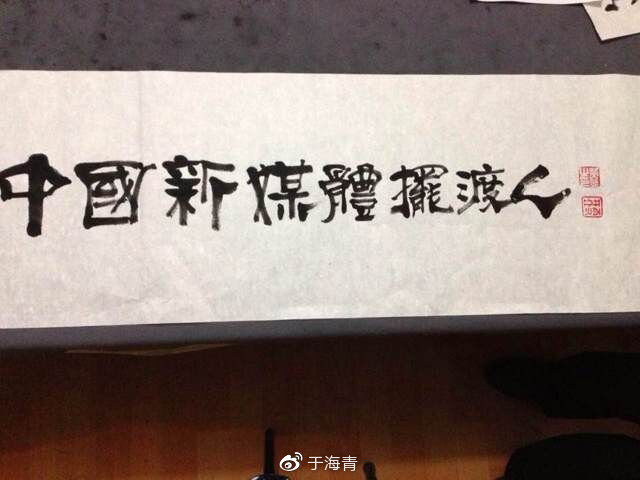 中國新媒體擺渡人
于海青